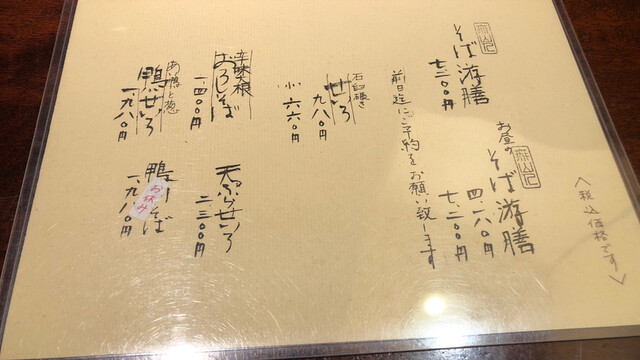 〈税込価格です〉
そば游膳
七.二〇〇円
お昼の
そば游膳
四.一八〇円
七.二〇〇円
前日迄にご予約をお願い致します
石臼碾き
せいろ
九八〇円
小 六六〇円
辛味大根
おろしそば
一.四〇〇円
天ぷらせいろ
二.三〇〇円
あい鴨と葱
鴨せいろ
一.九八〇円
鴨汁そば
お休み
一.九八〇円